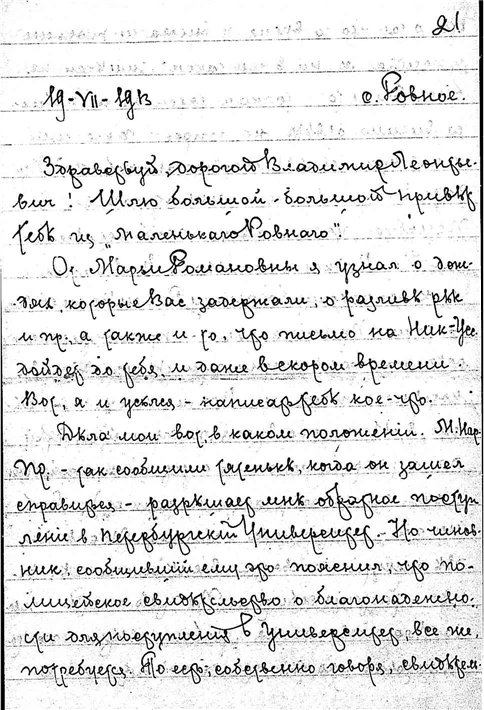 21
19-VII-1913 с. Ровное.
Здравствуй, дорогой Владимир Леонтье-
вич! Шлю большой-большой привѣт
тебѣ из „маленькаго Ровнаго".
От Марьи Романовны я узнал о дож-
дях, которые Вас задержали, о разливѣ рѣк
и пр., а также и то, что письмо на Ник-Усс.
дойдет до тебя, и даже в скором времени.
Вот, я и усѣлся – написать тебѣ кое-что.
Дѣла мои вот в каком положеніи. М. Нар.
Пр. – так сообщили тятенькѣ, когда он зашел
справиться – разрѣшает мнѣ обратное поступ-
леніе в Петербургскій Университет. – Но чинов-
ник, сообщившій ему это пояснил, что по-
лицейское свидѣтельство о благонадежно-
сти для поступления в Университет, все же,
потребуется. То есть, собственно говоря, свидѣтель-